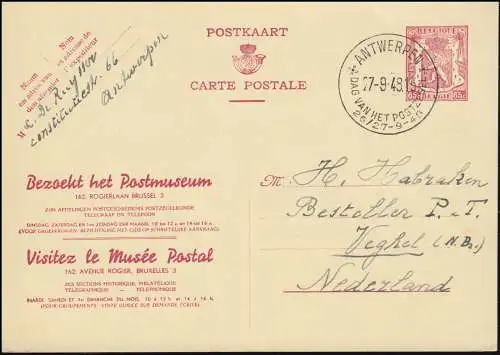 POSTKAART
CARTE POSTALE
Naam
en adres van
den afzender
Nom
et adresse de
l'expéditeur
M
constitutiestr. 66
Antwerpen
ANTWERPEN
27-9-48
DAG VAN HET POST
26/27-9-48
BELGIQUE
BELGIE
65c 65c
Bezoekt het Postmuseum
162, ROGIERLAAN BRUSSEL 3
ZIJN AFDELINGEN POSTGESCHIEDENIS POSTZEGELKUNDE
TELEGRAAF EN TELEFOON
DINSDAG, ZATERDAG, EN 1ste ZONDAG DER MAAND, 10 tot 12 u. en 14 tot 16 u.
Visitez le Musée Postal
162, AVENUE ROGIER, BRUXELLES 3
SES SECTIONS HISTORIQUE, PHILATÉLIQUE
TÉLÉGRAPHIQUE — TÉLÉPHONIQUE
MARDI, SAMEDI ET 1er DIMANCHE DU MOIS, 10 à 12 h. et 14 à 16 h.
(POUR GROUPEMENTS: VISITE GUIDÉE SUR DEMANDE ÉCRITE)
M. H. Habraken
Besteller P.&T.
Veghel (N.Br.)
Nederland